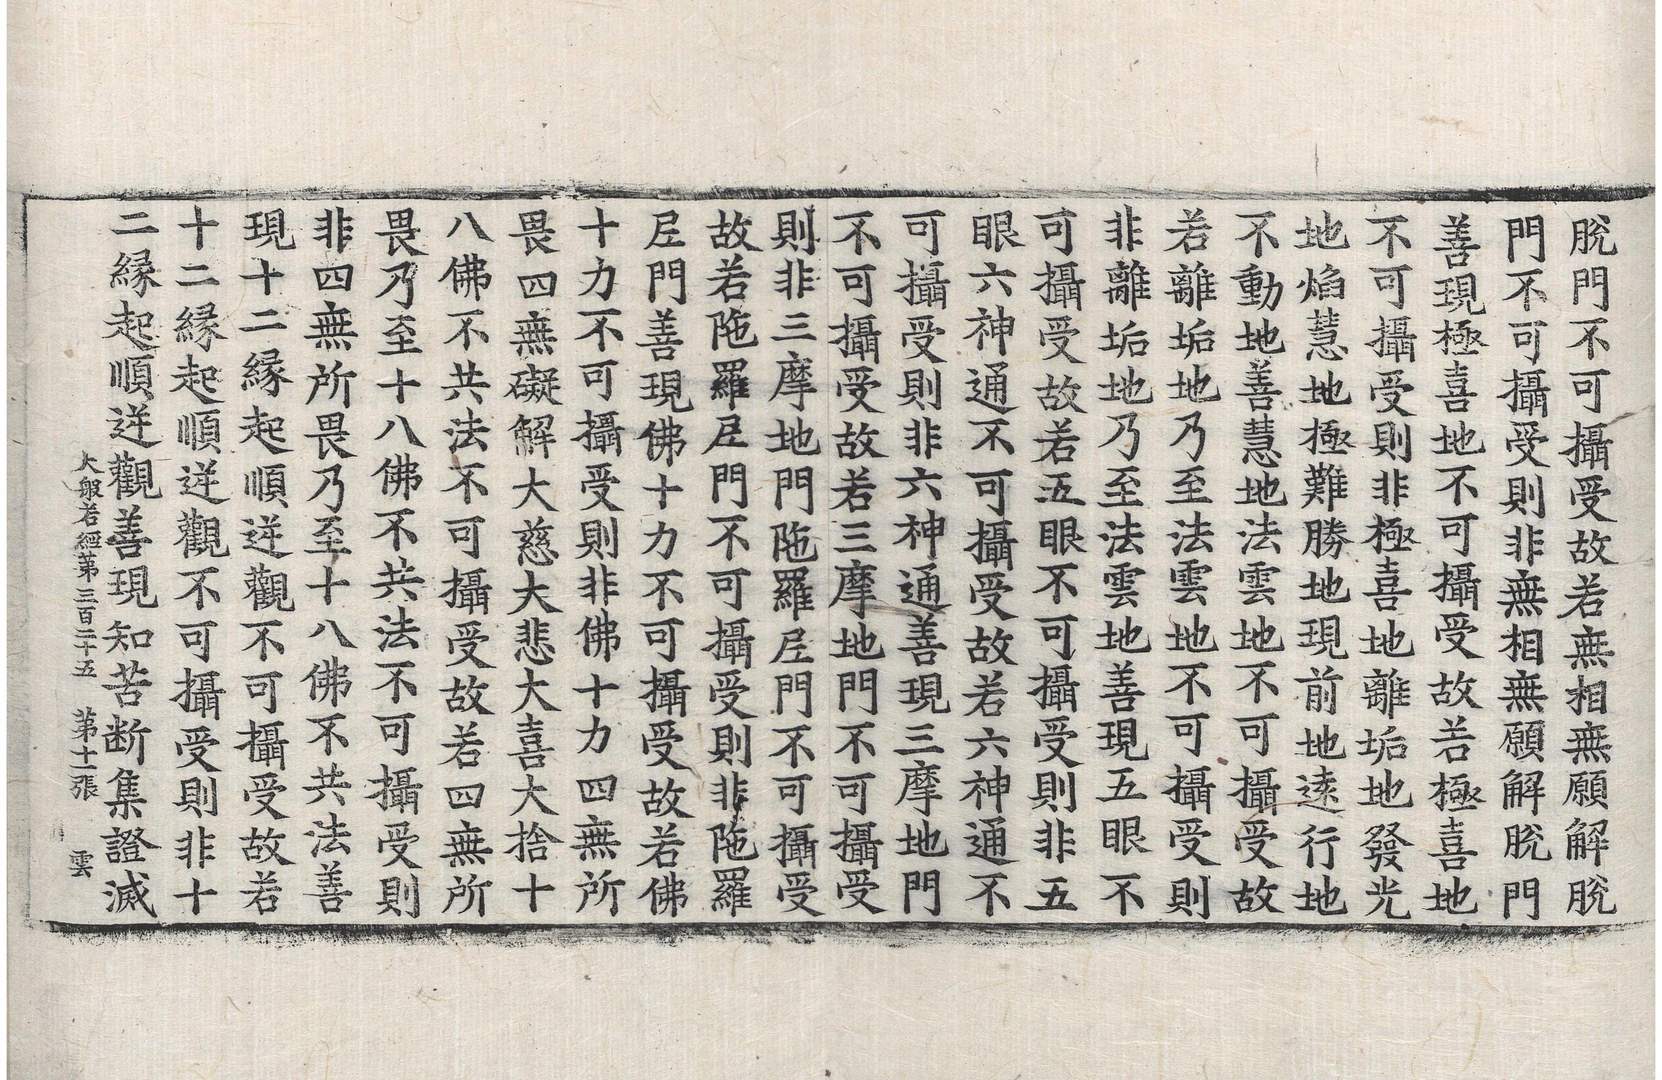 脫門不可攝受故若無相無願解脫
門不可攝受則非無相無願解脫門
善現極喜地不可攝受故若極喜地
不可攝受則非極喜地離垢地發光
地焰慧地極難勝地現前地遠行地
不動地善慧地法雲地不可攝受故
若離垢地乃至法雲地不可攝受則
非離垢地乃至法雲地善現五眼不
可攝受故若五眼不可攝受則非五
眼六神通不可攝受故若六神通不
可攝受則非六神通善現三摩地門
不可攝受故若三摩地門不可攝受
則非三摩地門陁羅尼門不可攝受
故若陁羅尼門不可攝受則非陁羅
尼門善現佛十力不可攝受故若佛
十力不可攝受則非佛十力四無所
畏四無礙解大慈大悲大喜大捨十
八佛不共法不可攝受故若四無所
畏乃至十八佛不共法不可攝受則
非四無所畏乃至十八佛不共法善
現十二緣起順逆觀不可攝受故若
十二緣起順逆觀不可攝受則非十
二緣起順逆觀善現知苦斷集證滅
大般若經第三百二十五 第十一張 雲